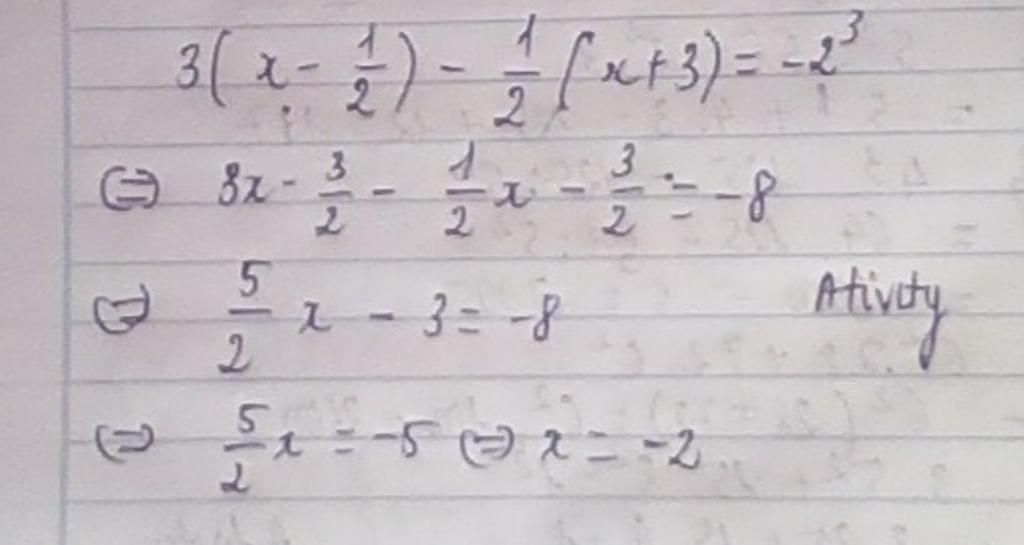 3(x - 1/2) - 1/2(x+3) = -2³
⇔ 3x - 3/2 - 1/2 x - 3/2 = -8
⇔ 5/2 x - 3 = -8
Ativity
⇔ 5/2 x = -5 ⇔ x = -2